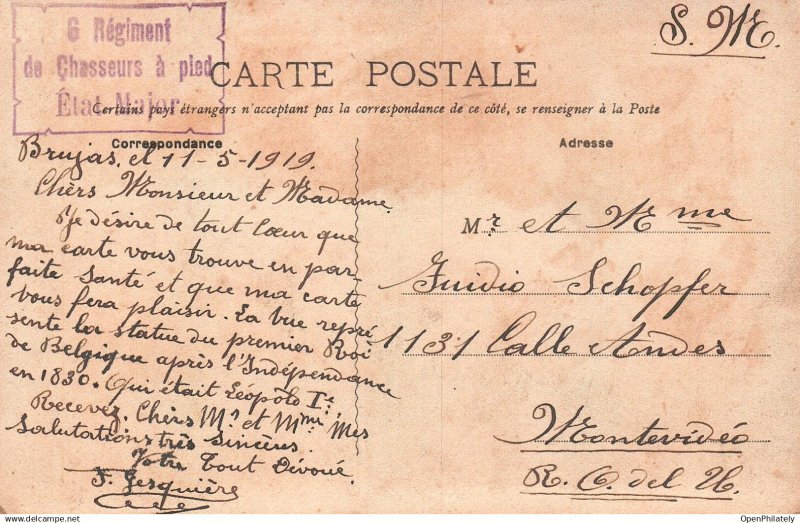 6 Régiment
de Chasseurs à pied
État Major
S. M.
CARTE POSTALE
Certains pays étrangers n'acceptant pas la correspondance de ce côté, se renseigner à la Poste
Correspondance
Brujas, el 11-5-1919.
Chèrs Monsieur et Madame
Je désire de tout Cœur que
ma carte vous trouve en par-
faite santé et que ma carte
vous fera plaisir. La vue repré
sente la statue du premier Roi
de Belgique après l'Indépendance
en 1830. Qui était Léopold Ie.
Recevez, Chèrs Mr et Mme mes
Salutations très sincères.
Votre Tout Dévoué.
F. Gesquière
Adresse
Mr. et Mme
Schopfer
1131 Calle Andes
Montevidéo
R. O. del U.
delcampe.net
OpenPhilately